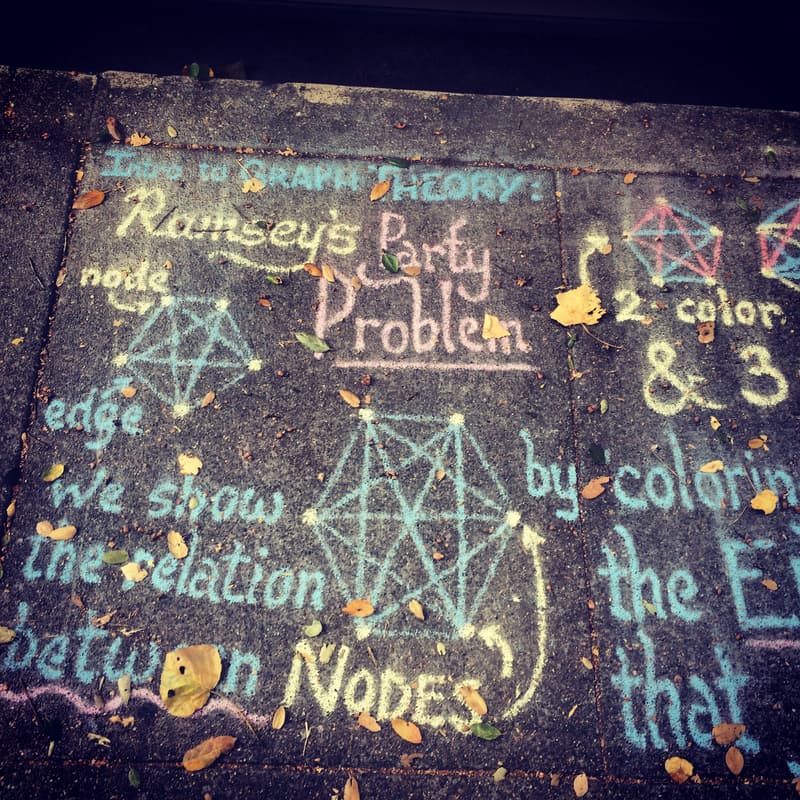 Intro to GRAPH THEORY:
Ramsey's Party
Problem
node
edge
2-color
& 3
We show
the relation
between NODES
by colorin
the E
that